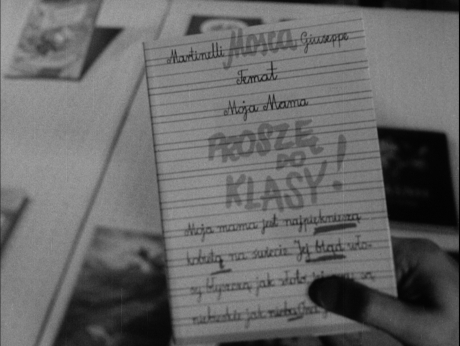 Martinelli Mosca Giuseppe
Temat
Moja Mama
PROSZĘ
DO
KLASY!
Moja mama jest najpiękniejszą
kobietą na świecie. Jej bląd wło-
sy błyszczą jak złoto
niebieskie jak niebo. Ona